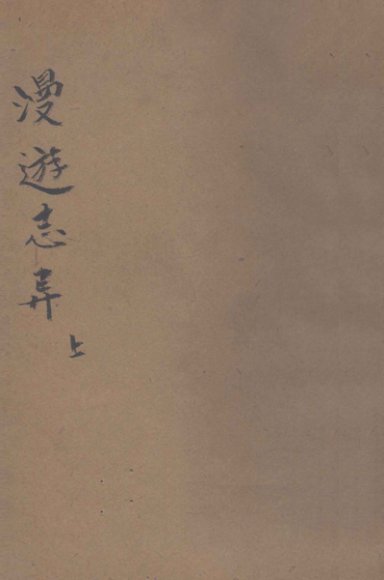 漫遊志异
上